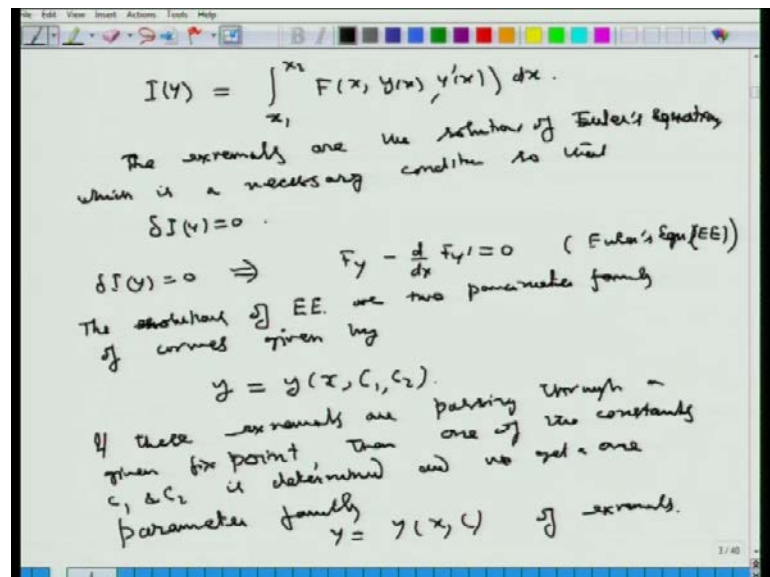 File Edit View Insert Actions Tools Help
I(y) = ∫_{x_1}^{x_2} F(x, y(x), y'(x)) dx.
The exremals are the solution of Euler's Equation,
which is a necessary condition so that
δI(y)=0.
δI(y)=0 ⇒ F_y - d/dx F_y' = 0 (Euler's Eqn (EE))
The solutions of EE. are two parameter family
of curves given by
y = y(x, C_1, C_2).
If these exremals are passing through a
given fix point, then one of the constants
C_1 & C_2 is determined and we get a one
parameter family
y = y(x, C) of exremals.
3/40